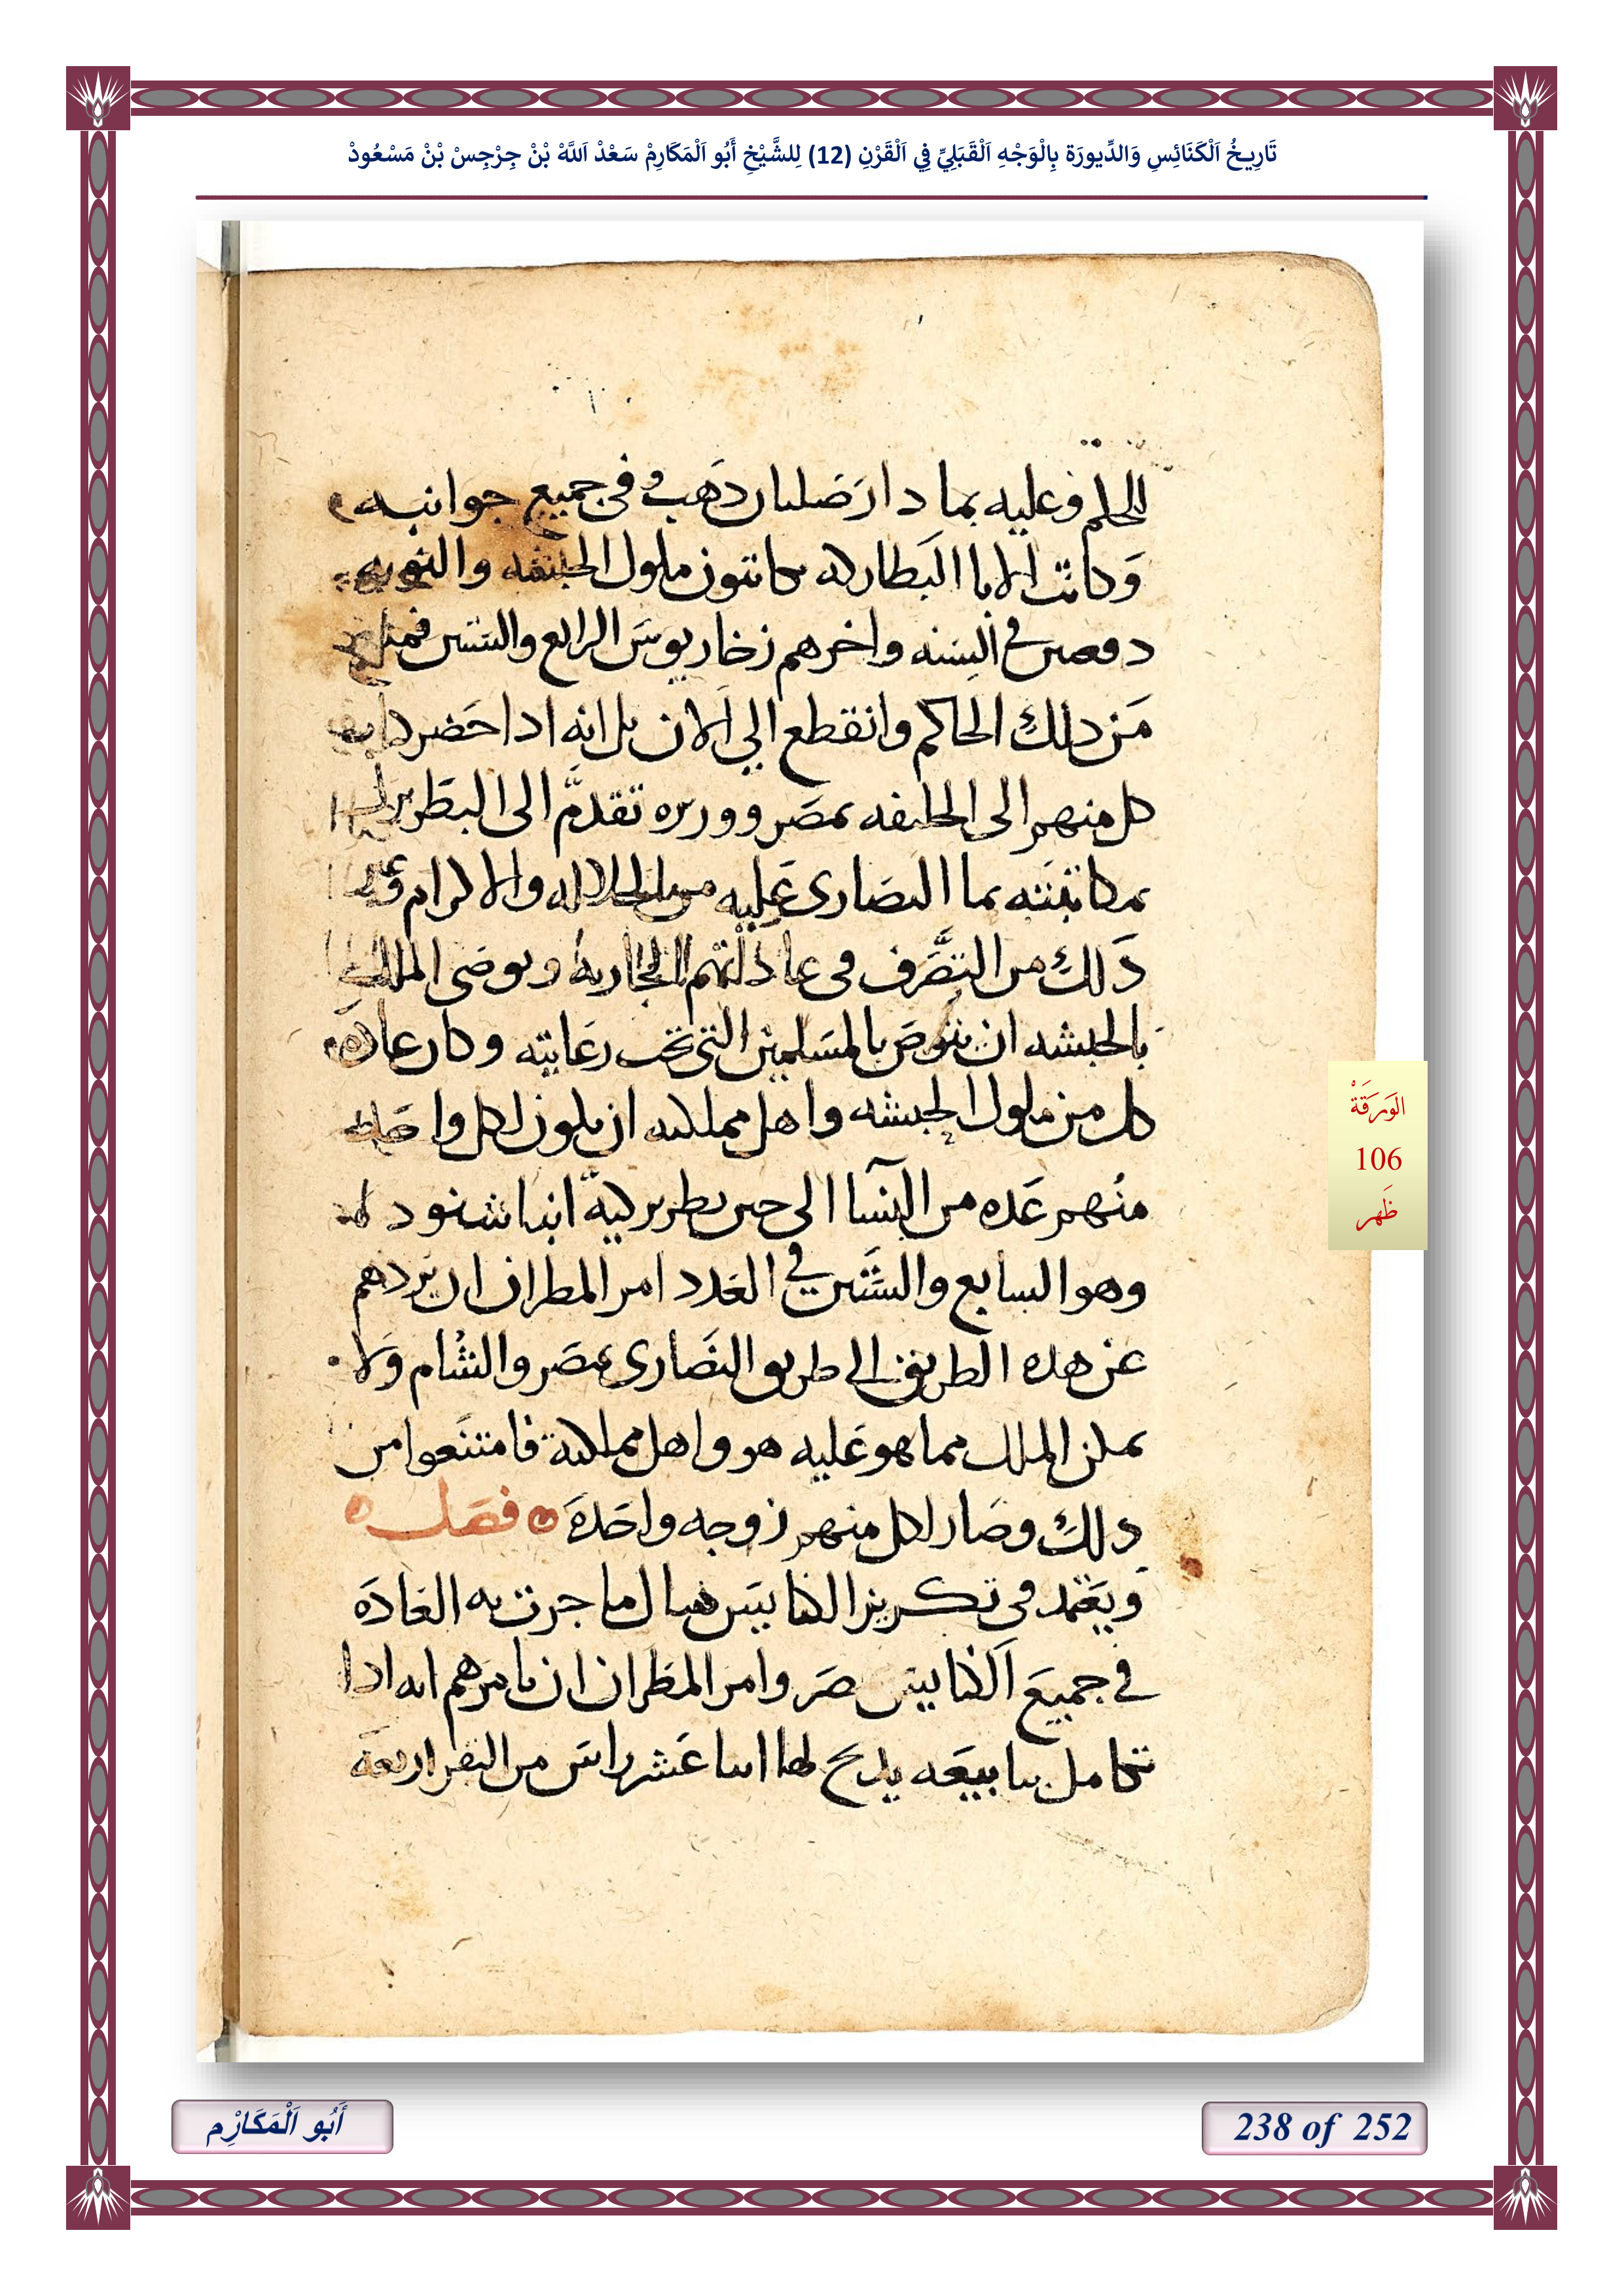 تَارِيخُ اَلْكَنَائِسِ وَالدِّيورَة بِالْوَجْهِ اَلْقَبَلِيِّ فِي اَلْقَرْنِ (12) لِلشَّيْخِ أَبُو اَلْمَكَارِمْ سَعْدْ اَللَّهْ بْنْ جِرْجِسْ بْنْ مَسْعُودْ
للحلم وعليه بما دار صلبان دهب وفى جميع جوانبه
وكانت الابا البطاركه يكاتبون ملوك الحبشه والنوبه
دفعتين في السنه واخرهم زخاريوس الرابع والستين فمنع
من دلك الحاكم وانقطع الي الان بل انه ادا حضر كتاب
كل منهم الى الخليفه بمصر ووزيره تقدم الى البطريرك
بمكاتبته بما النصارى عليه من الجلاله والاكرام
دلك من التصرف فى عاداتهم الجاريه ويوصى الملك
بالحبشه ان يتوص بالمسلمين التى تحت رعايته وكان عادة
كل من ملوك الحبشه واهل مملكته ان يكون لكل واحد
منهم عده من النسا الى حين بطريركية انبا شنوده
وهو السابع والستين في العدد امر المطران ان يردهم
عن هده الطريق الي طريق النصارى بمصر والشام ولا
يمكن الملك مما هو عليه هو واهل مملكتة فامتنعوا من
دلك وصار لكل منهم زوجه واحدة فصل
ويعتمد فى تكريز الكنايس هناك ما جرت به العادة
في جميع الكنايس بمصر وامر المطران ان يامرهم انه ادا
تكامل بنا بيعه يدبح لها اتنا عشر راس من البقر اربعة
الْوَرَقَةْ
106
ظَهر
أَبُو اَلْمَكَارِْم
238 of 252